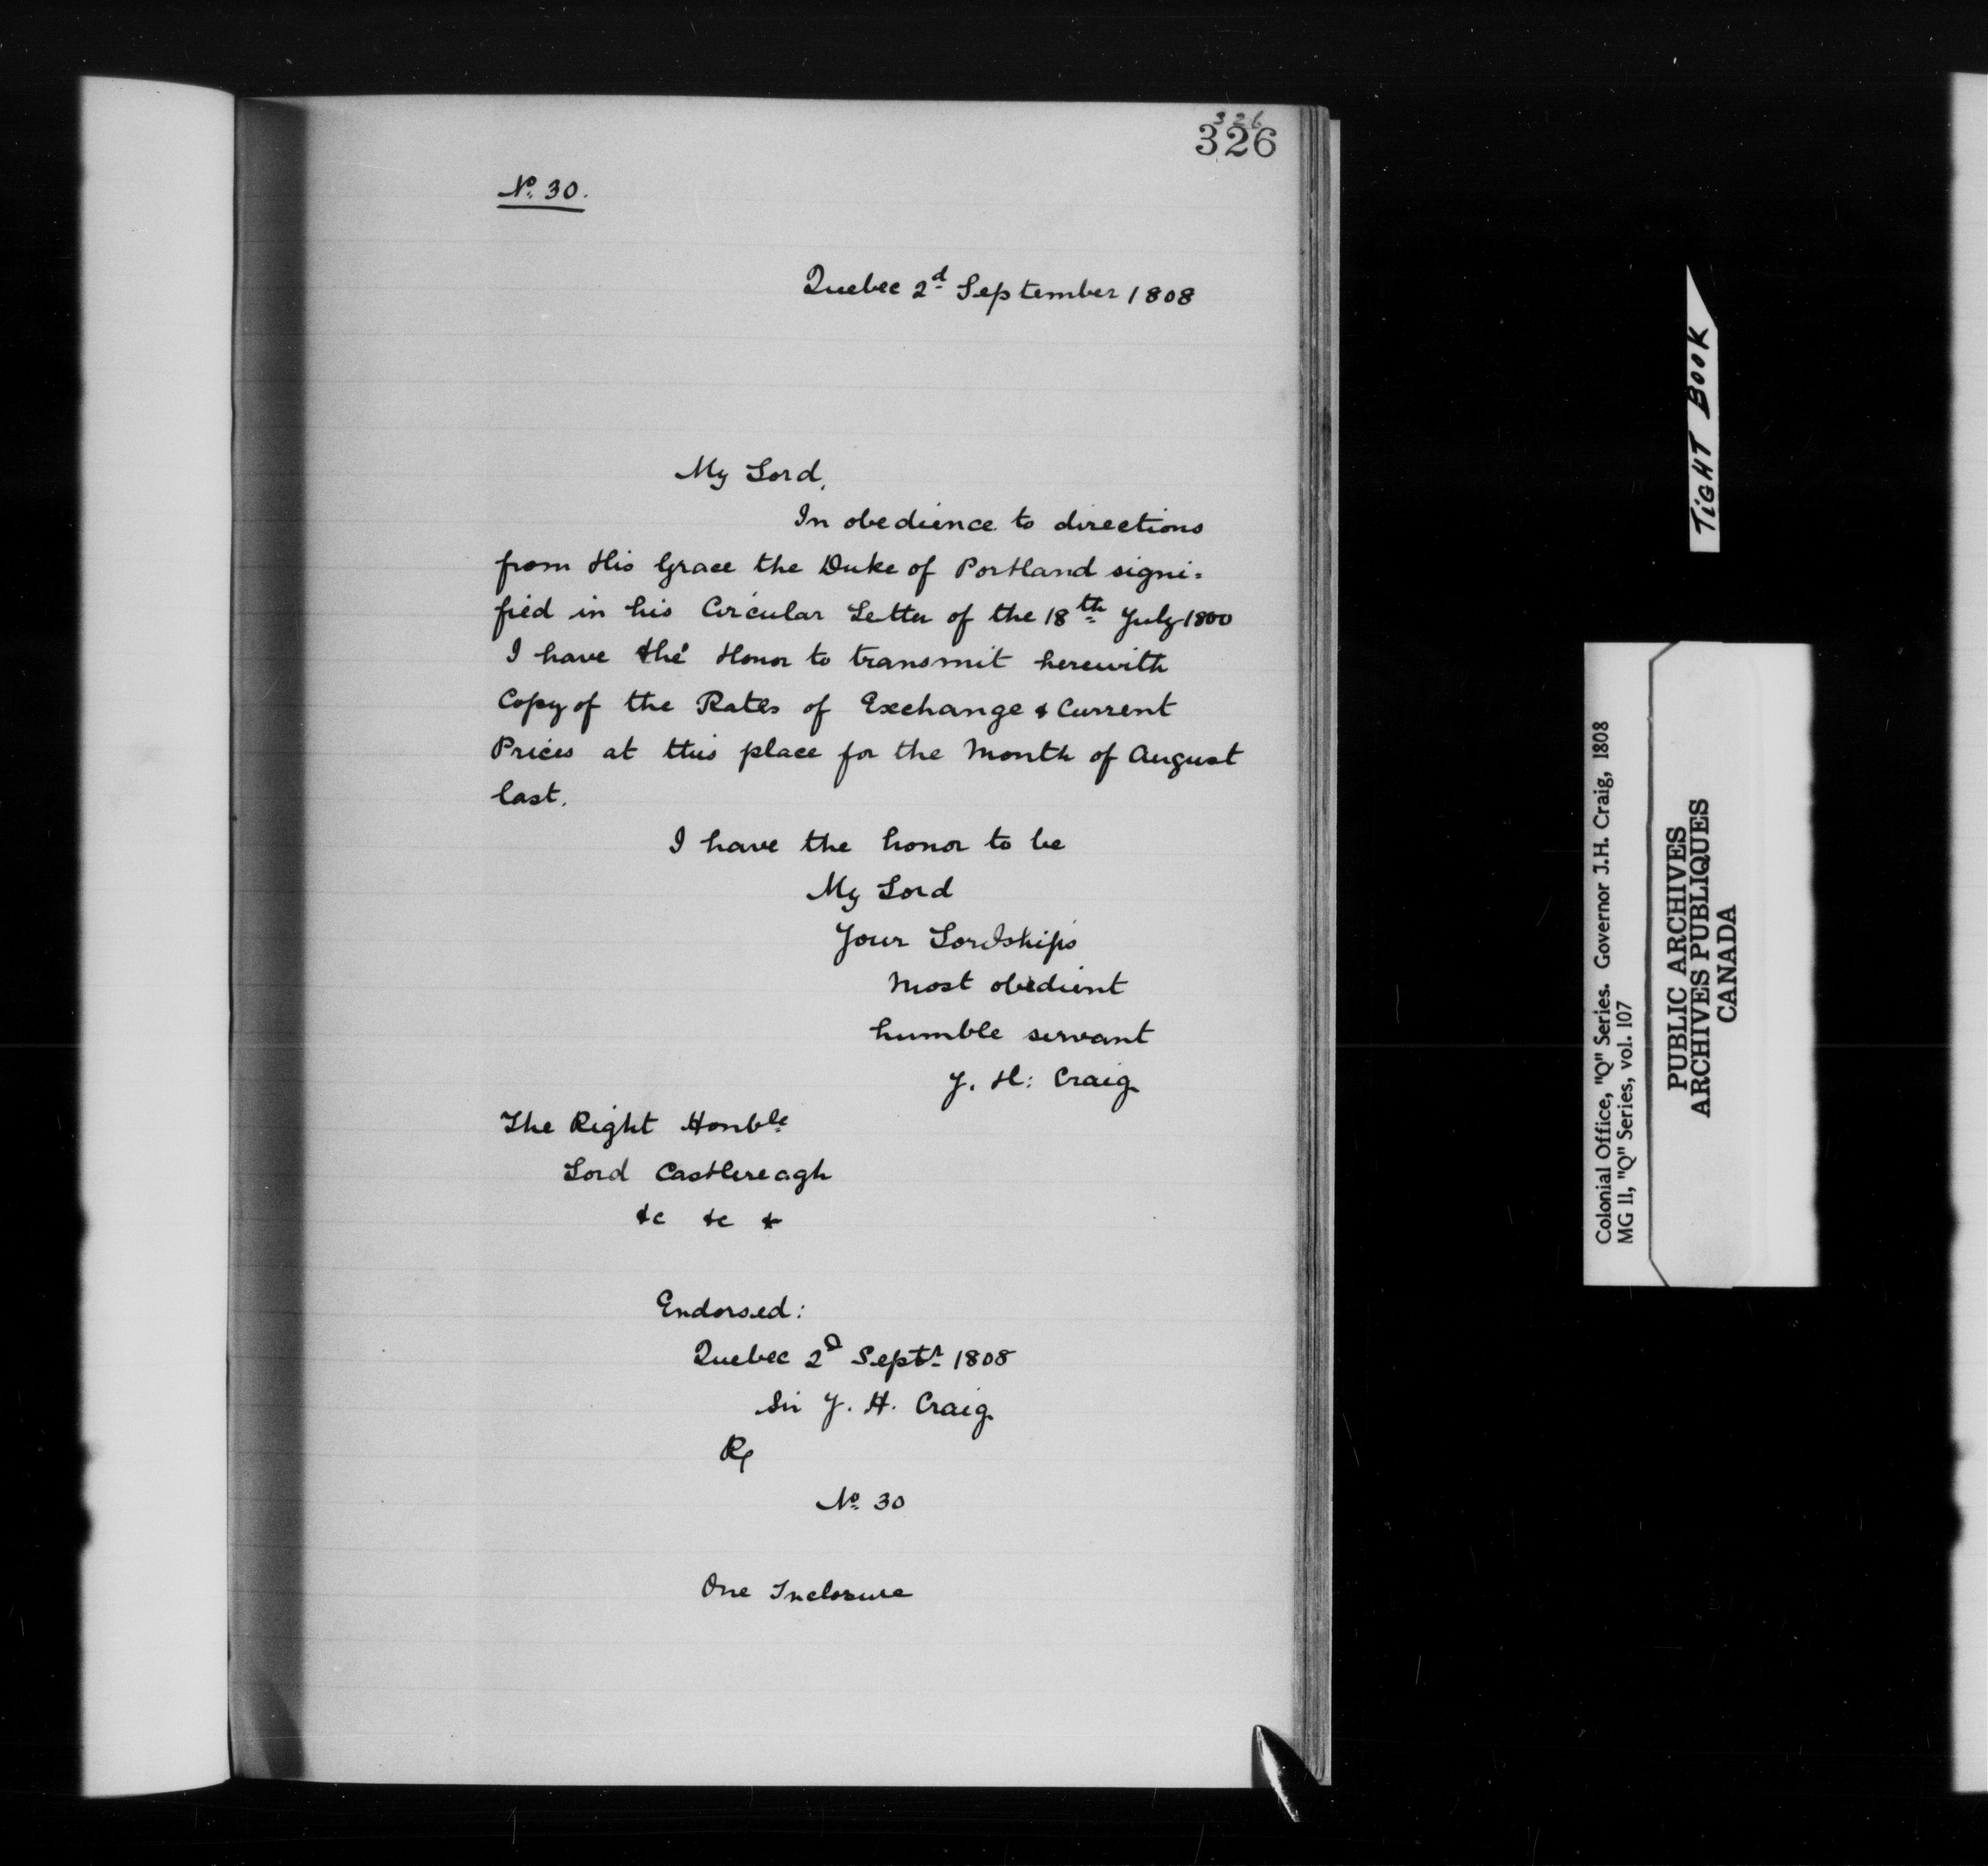 326
326
No. 30.
Quebec 2d September 1808
My Lord,
In obedience to directions
from His Grace the Duke of Portland signi=
fied in his Circular Letter of the 18th July 1800
I have the Honor to transmit herewith
Copy of the Rates of Exchange & Current
Prices at this place for the Month of August
last.
I have the honor to be
My Lord
Your Lordships
Most obedient
humble servant
J. H: Craig
The Right Honble
Lord Castlereagh
&c &c &
Endorsed:
Quebec 2d Septr 1808
Sir J. H. Craig
No. 30
One Inclosure
TIGHT BOOK
Colonial Office, "Q" Series. Governor J.H. Craig, 1808
MG 11, "Q" Series, vol. 107
PUBLIC ARCHIVES
ARCHIVES PUBLIQUES
CANADA